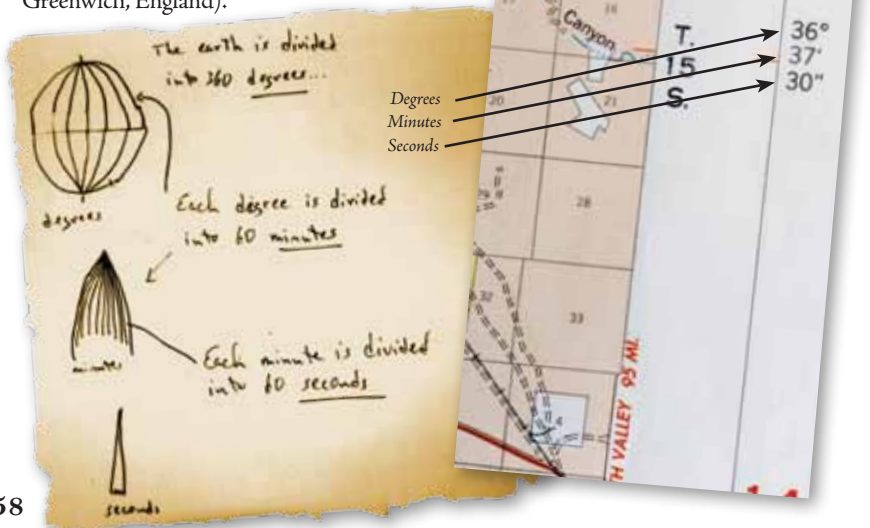 Greenwich, England).
The earth is divided
into 360 degrees...
degrees
Each degree is divided
into 60 minutes
minutes
Each minute is divided
into 60 seconds
seconds
58
Degrees
Minutes
Seconds
Canyon
16
T.
15
S.
36°
37'
30"
20
21
29
28
32
33
4
TH VALLEY 95 MI.